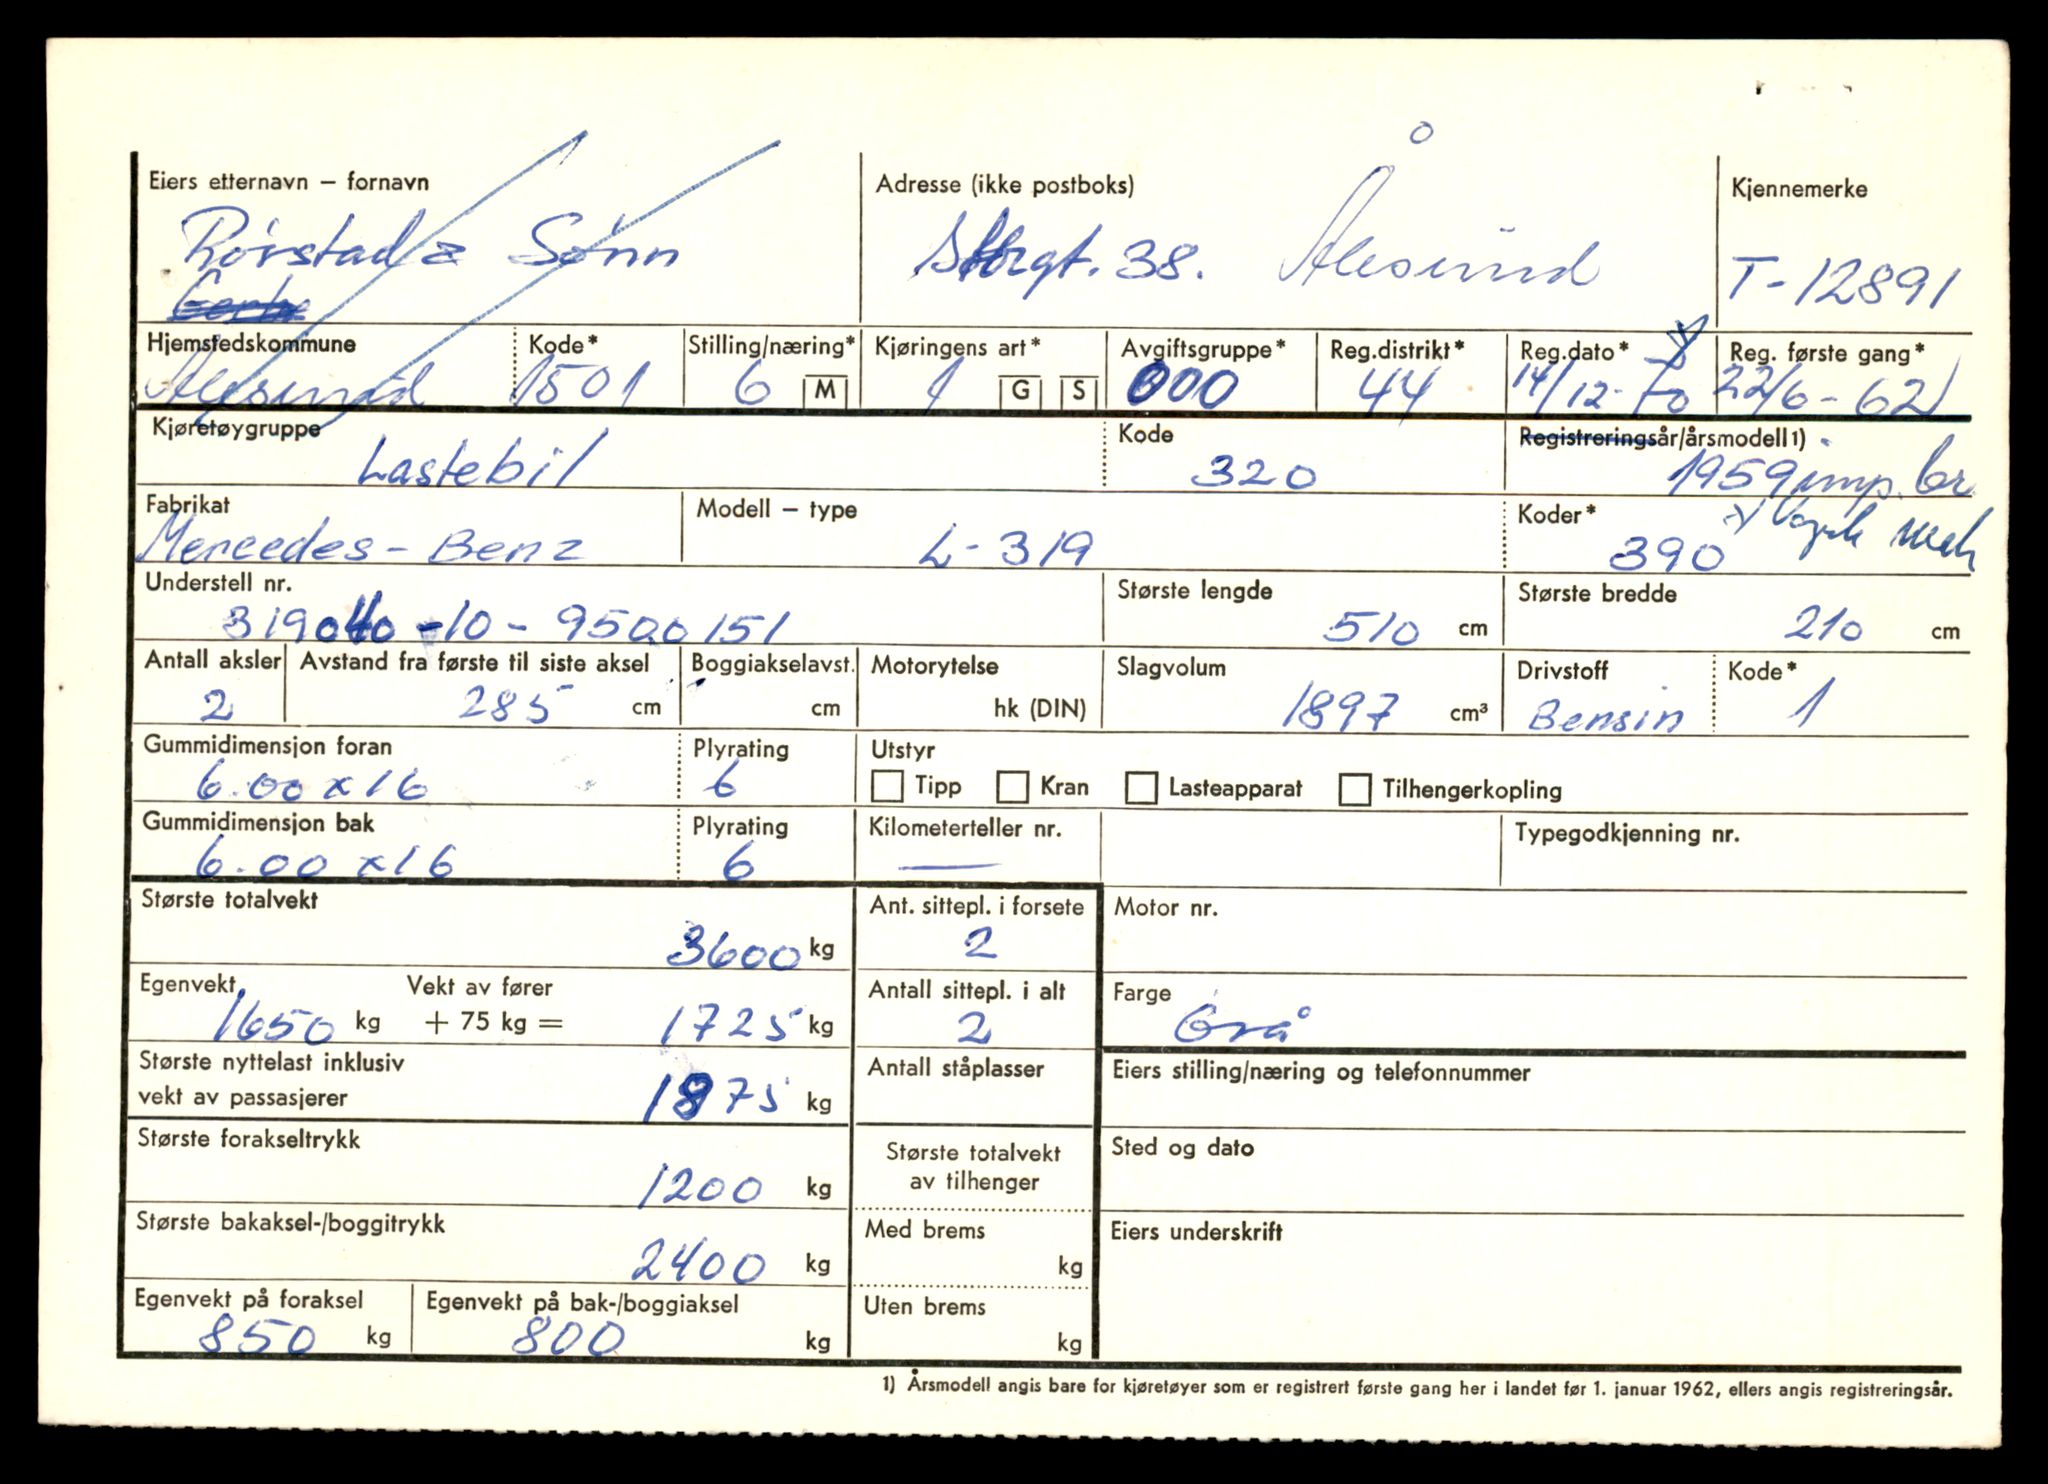 Eiers etternavn – fornavn Adresse (ikke postboks) Kjennemerke
Rørstad & Sønn Storgt. 38. Ålesund T-12891
Hjemstedskommune Kode* Stilling/næring* Kjøringens art* Avgiftsgruppe* Reg.distrikt* Reg.dato* Reg. første gang*
Ålesund 1501 6 M 1 G S 000 44 14/12-70 22/6-62
Kjøretøygruppe Kode Registreringsår/årsmodell1)
Lastebil 320 1959 imp. br.
Fabrikat Modell – type Koder*
Mercedes-Benz L-319 390
Understell nr. Største lengde Største bredde
319040-10-9500151 510 cm 210 cm
Antall aksler Avstand fra første til siste aksel Boggiakselavst. Motorytelse Slagvolum Drivstoff Kode*
2 285 cm cm hk (DIN) 1897 cm³ Bensin 1
Gummidimensjon foran Plyrating Utstyr
6.00 x 16 6 Tipp Kran Lasteapparat Tilhengerkopling
Gummidimensjon bak Plyrating Kilometerteller nr. Typegodkjenning nr.
6.00 x 16 6 —
Største totalvekt Ant. sittepl. i forsete Motor nr.
3600 kg 2
Egenvekt Vekt av fører Antall sittepl. i alt Farge
1650 kg + 75 kg = 1725 kg 2 Grå
Største nyttelast inklusiv Antall ståplasser Eiers stilling/næring og telefonnummer
vekt av passasjerer 1875 kg
Største forakseltrykk Største totalvekt Sted og dato
1200 kg av tilhenger
Største bakaksel-/boggitrykk Med brems Eiers underskrift
2400 kg kg
Egenvekt på foraksel Egenvekt på bak-/boggiaksel Uten brems
850 kg 800 kg kg
1) Årsmodell angis bare for kjøretøyer som er registrert første gang her i landet før 1. januar 1962, ellers angis registreringsår.